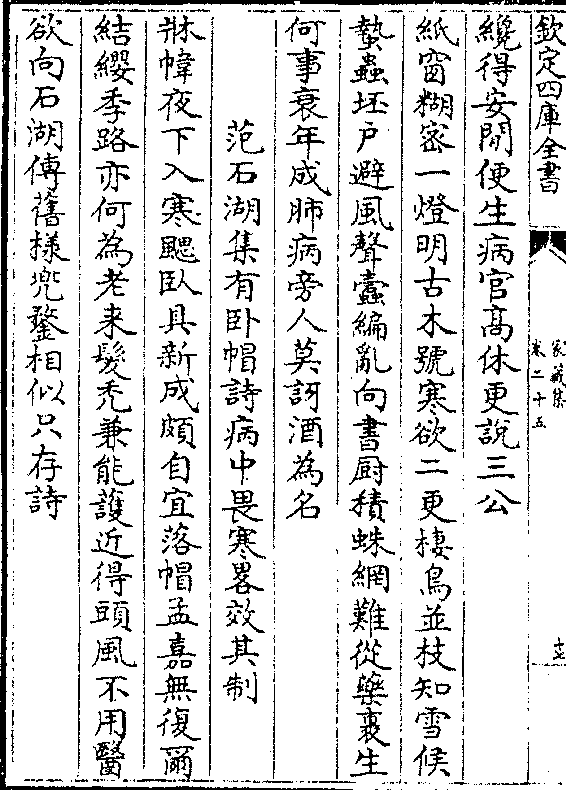 欽定四庫全書
家藏集
卷二十五
十七
纔得安閒便生病官髙休更說三公
紙窗糊密一燈明古木號寒欲二更棲鳥並枝知雪候
蟄蟲坯户避風聲蠧編亂向書厨積蛛網難從藥裹生
何事衰年成肺病旁人莫訶酒為名
范石湖集有卧帽詩病中畏寒畧效其制
牀幃夜下入寒颸卧具新成頗自宜落帽孟嘉無復爾
結纓季路亦何為老来髮秃兼能護近得頭風不用醫
欲向石湖傳舊樣兜鍪相似只存詩